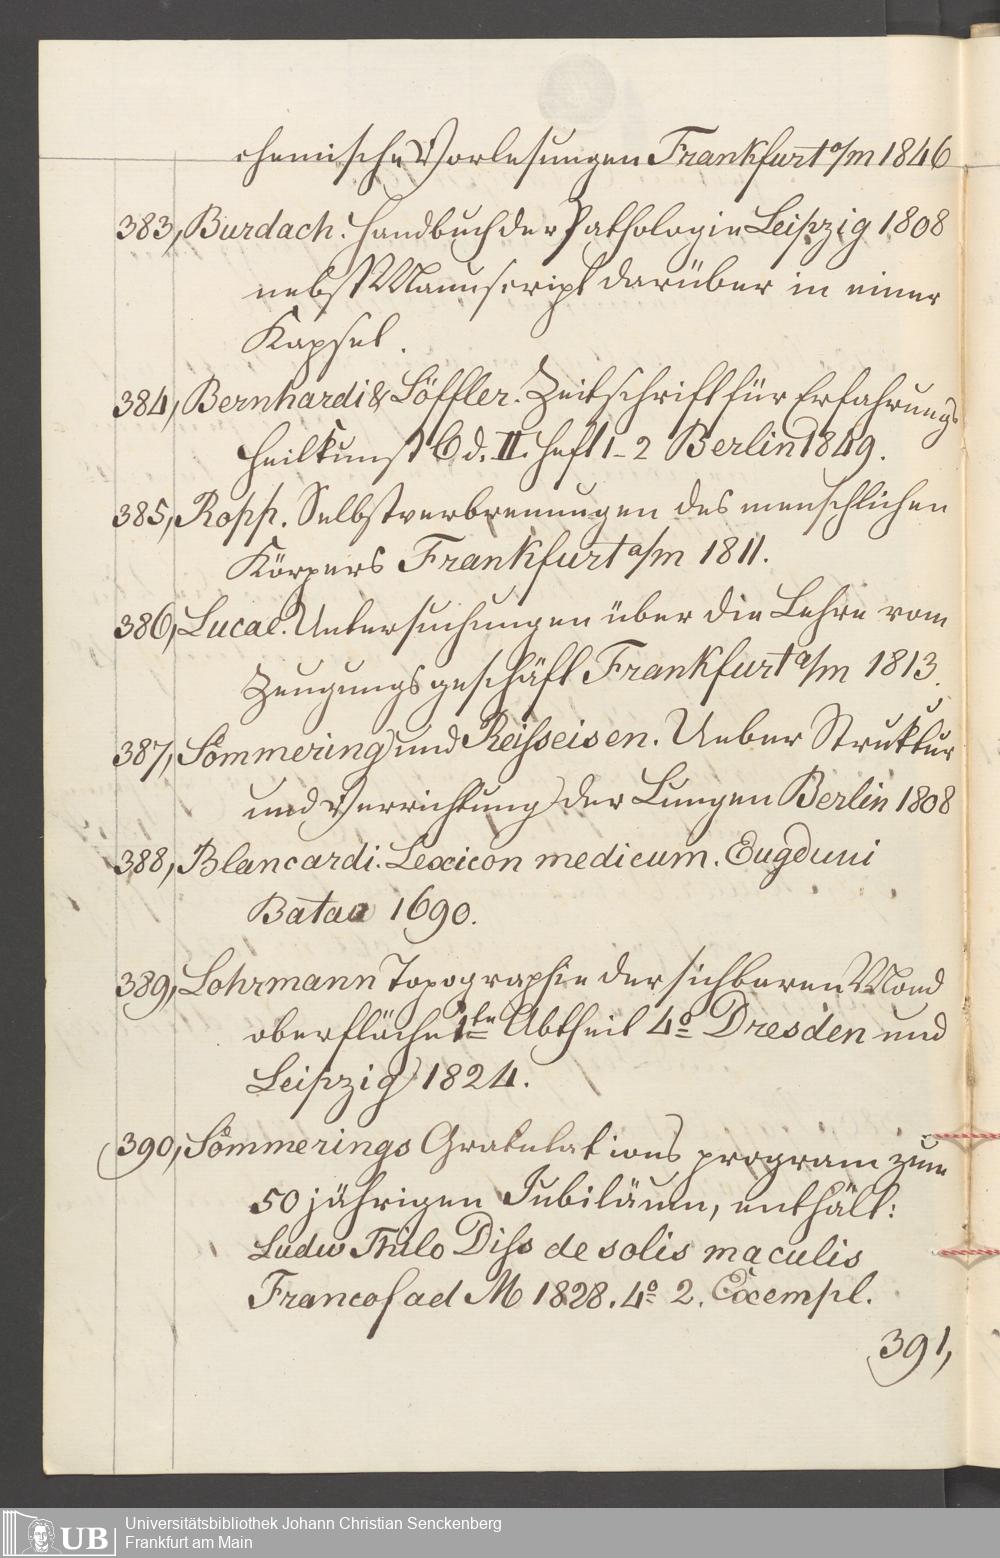 chemische Vorlesungen Frankfurt a/m 1846
383, Burdach. Handbuch der Pathologie Leipzig 1808
nebst Manuscript darüber in einer
Kapsel.
384, Bernhardi & Löffler. Zeitschrift für Erfahrungs
heilkunst Bd. II. Heft 1-2 Berlin 1849.
385, Kopp. Selbstverbrennungen des menschlichen
Körpers Frankfurt a/m 1811.
386, Lucae. Untersuchungen über die Lehre vom
Zeugungsgeschäft Frankfurt a/m 1813.
387, Sömmering und Reisseisen. Ueber Struktur
und Verrichtung der Lungen Berlin 1808
388, Blancardi. Lexicon medicum. Lugduni
Batav 1690.
389, Lohrmann Topographie der sichbaren Mond
oberfläche 1te Abtheil 4o Dresden und
Leipzig 1824.
390, Sömmerings Gratulations program zum
50 jährigen Jubiläum, enthält:
Ludw Thilo Diss de solis maculis
Francof ad M 1828. 4o 2. Exempl.
391,
UB
Universitätsbibliothek Johann Christian Senckenberg
Frankfurt am Main